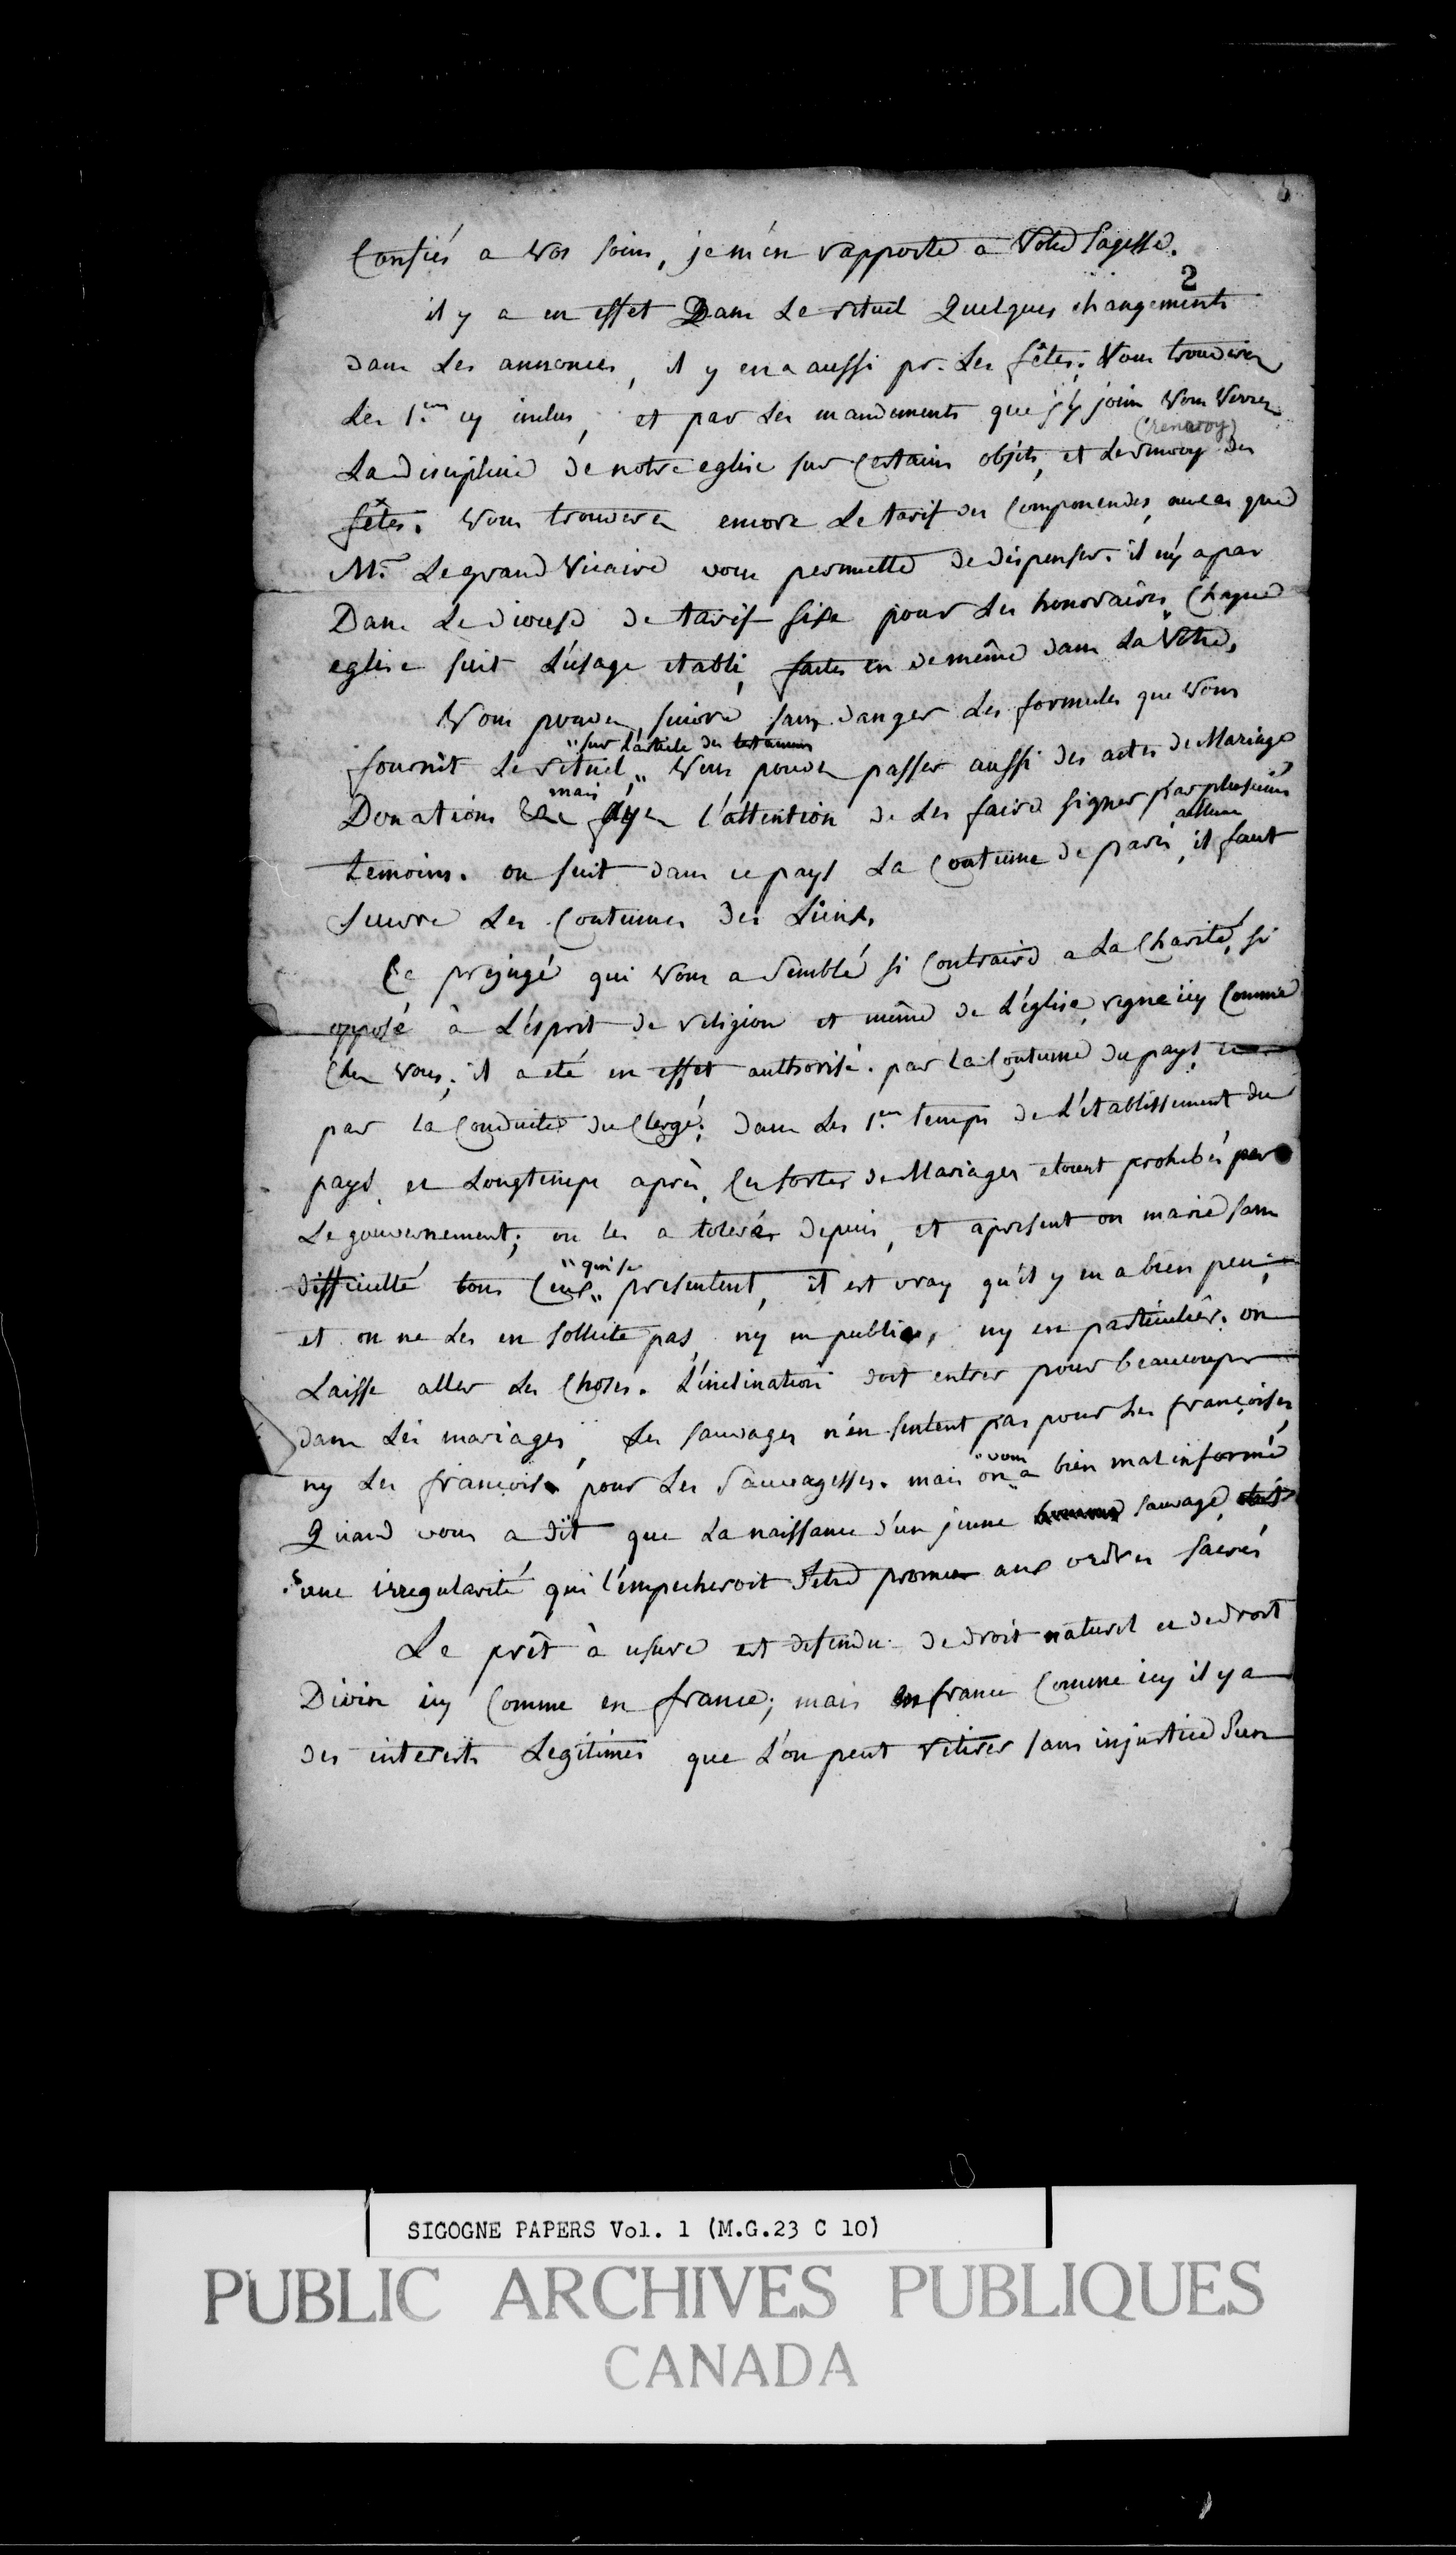 Confiés a vos soins, je m'en rapporte a votre sagesse.
2
il y a en effet Dans Le rituel Quelques changements
dans Les annonces, il y en a aussi pr. Les fêtes. Vous trouverez
Les 1.ers cy inclus, et par Les mandements que j'y joins vous verrez
(renvoy)
La discipline de notre eglise sur Certains objets, et Le renvoy des
fêtes. vous trouverez encore Le tarif des Componendes, avec que
Mr. Le grand Vicaire vous permette de dispenser. il n'y a pas
Dans Le diocese de tarif fixe pour Les honoraires, Chaque
eglise suit L'usage etabli, faites en de même dans La Vôtre,
Vous pouvez suivre sans danger Les formules que vous
"sur L'article des testamens
fournit Le rituel," vous pouvez passer aussi des actes de Mariage
mais
Donations ayez l'attention de Les faire signer par plusieurs
temoins. on suit dans ce pays La Coutume de paris, il faut
suivre Les Coutumes des Lieux.
Ce prejugé qui vous a semblé si Contraire a La Charité, si
opposé à L'esprit de religion et même de L'église, regne icy Comme
Chez vous; il a eté en effet authorisé. par La Coutume du pays,
par La Conduite du Clergé; dans Les 1.ers temps de L'etablissement du
pays, et Longtemps après, Ces sortes de Mariages etoient prohibés par
Le gouvernement; on les a tolerés depuis, et apresent on marie sans
"qui se
difficulté tous Ceux" presentent, il est vray qu'il y en a bien peu,
et on ne Les en sollicite pas, ny en public, ny en particulier. on
Laisse aller Les Choses. L'inclination doit entrer pour beaucoup
dans Les mariages, Les sauvages n'en sentent pas pour Les françoises,
ny Les françois pour Les Sauvagesses. mais on "vous a bien mal informé
Quand vous a dit que La naissance d'un jeune sauvage etoit
une irregularité qui l'empecheroit d'etre promu aux ordres sacrés
Le prêt à usure est defendu de droit naturel et de droit
Divin icy Comme en france; mais en france Comme icy il y a
des interests Legitimes que L'on peut retirer sans injustice d'un
SIGOGNE PAPERS Vol. 1 (M.G.23 C 10)
PUBLIC ARCHIVES PUBLIQUES
CANADA